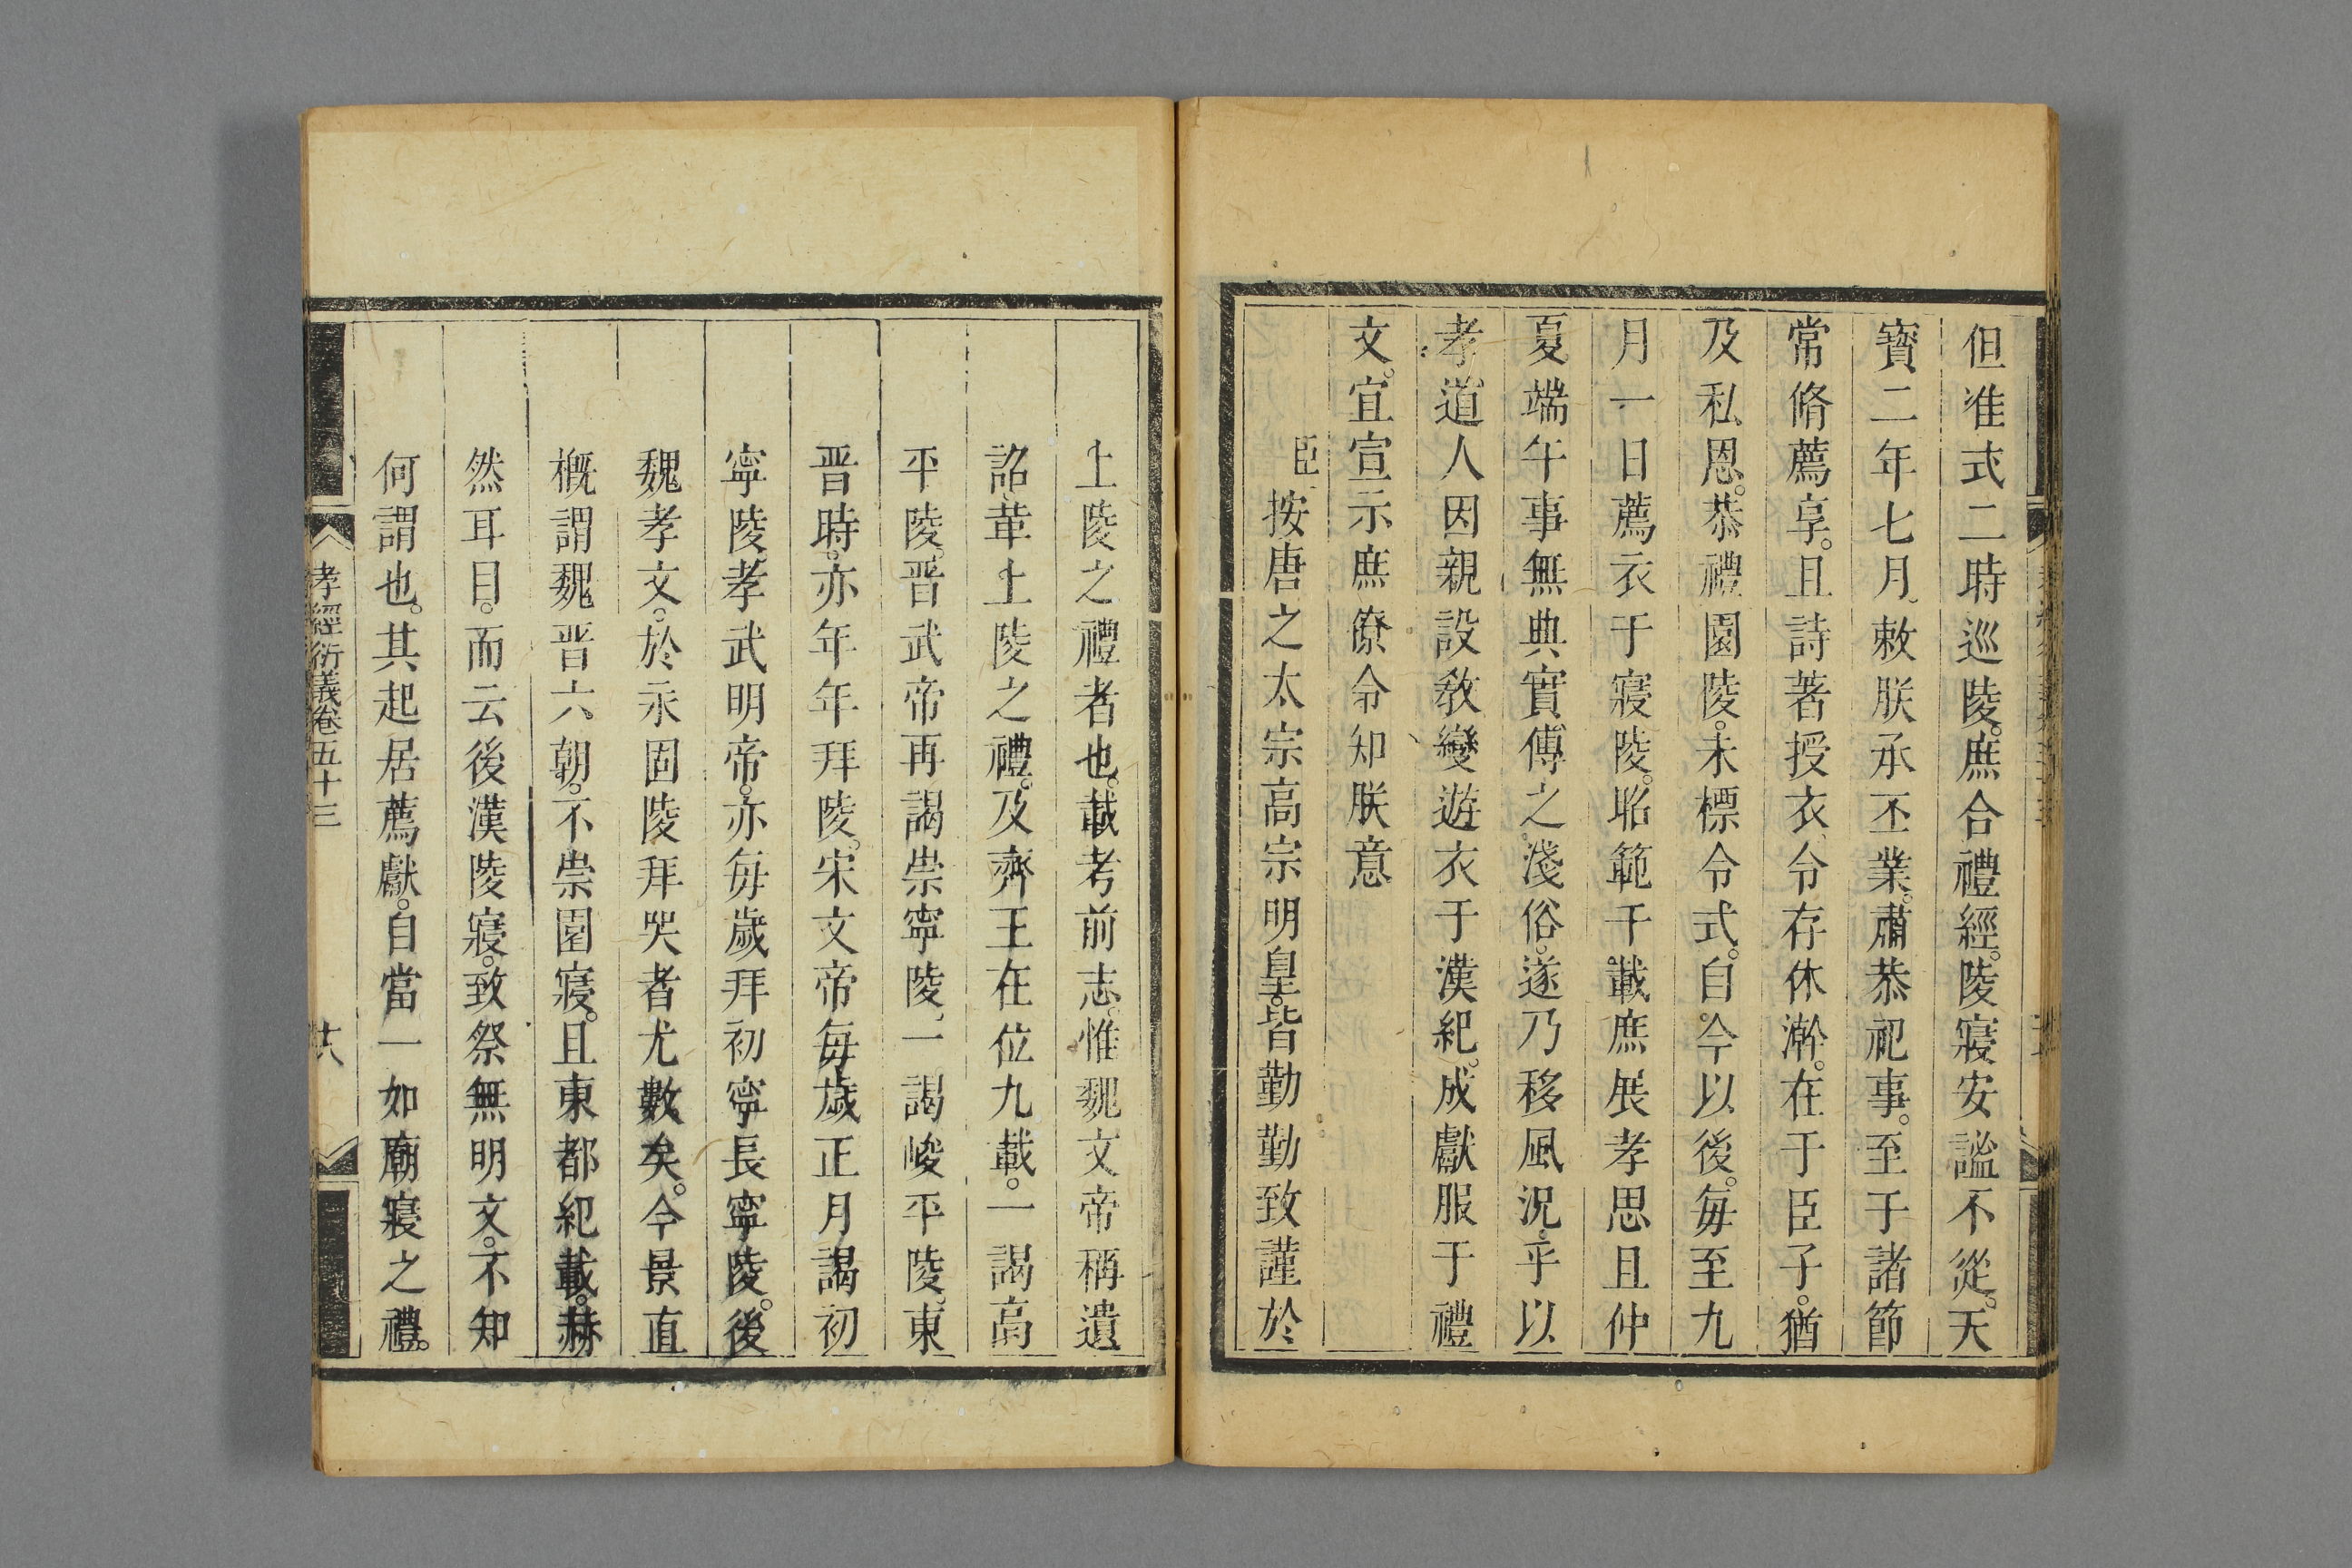 但准式二時巡陵。庶合禮經。陵寢安謐不從。天
寶二年七月。敕朕承丕業。肅恭祀事。至于諸節
常脩薦享。且詩著授衣。令存休澣。在于臣子。猶
及私恩。恭禮園陵。未標令式。自今以後。每至九
月一日薦衣于寢陵。貽範千載。庶展孝思。且仲
夏端午。事無典實。傳之淺俗。遂乃移風。況乎以
孝道人。因親設敎。變遊衣于漢紀。成獻服于禮
文。宜宣示庶僚。令知朕意
臣按唐之太宗高宗明皇。皆勤勤致謹於
上陵之禮者也。載考前志。惟魏文帝稱遺
詔革上陵之禮。及齊王在位九載。一謁高
平陵。晋武帝再謁崇寧陵。一謁峻平陵。東
晋時。亦年年拜陵。宋文帝每歲正月謁初
寧陵。孝武明帝。亦每歲拜初寧長寧陵。後
魏孝文。於永固陵拜哭者尤數矣。今景直
槪謂魏晋六朝。不崇園寢。且東都紀載。赫
然耳目。而云後漢陵寢。致祭無明文。不知
何謂也。其起居薦獻。自當一如廟寢之禮。
孝經衍義卷五十三
十八